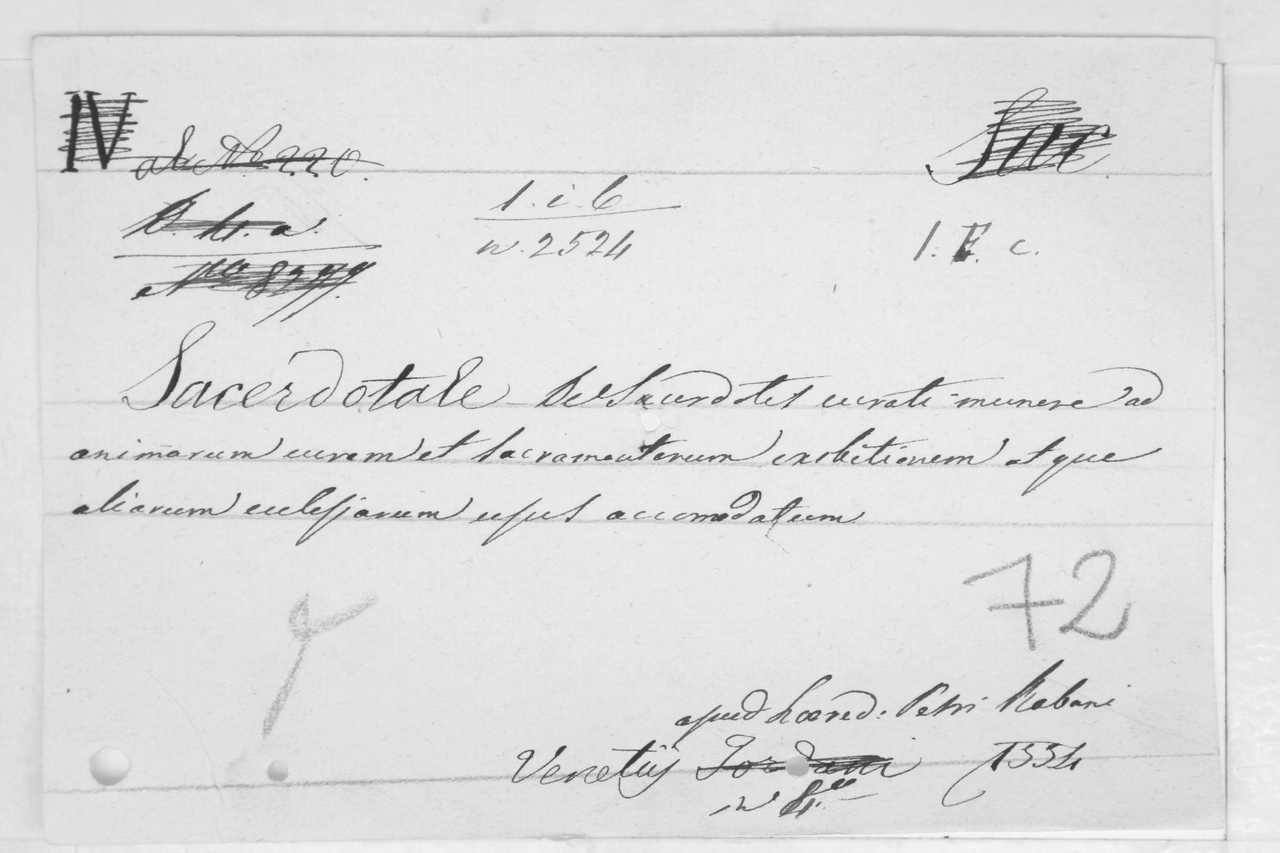 N
1. i. 6
n. 2524
1. E. c.
Sacerdotale de Sacerdotis curati munere ad
animarum curam et sacramentorum exibitionem atque
aliarum eclessiarum usus accomodatum
72
apud hœred: Petri Rabani
Venetiis 1554
in 4to